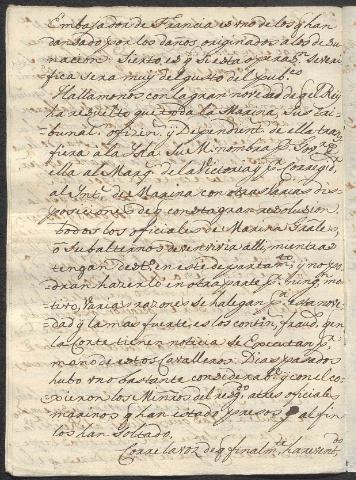 Embajador de Francia es uno de los q han
dansado por los daños originados a los de su
nacion: Sierto es q si esta obra se veri
fica sera muy del gusto del publ.co
Hallamonos con la gran novedad de q el Rey
ha resuelto que toda la Marina, Sus Tri
bunal, ofizin y Dependient. de ella trans
fiera a la Isla
ella al Marq. de la Victoria, y p. Corregid.
al Int.e de Marina con otras varias dis
posisiones de q consta gran resoluzion
todos los oficiales de Marina
o Subalternos de vivir alli, mientras
tengan dest.o en este departam.to y no po
dran hazerlo en otra parte p.r ning.n mo
tivo, Varias razones se halegan p.a esta nove
dad y la mas fuerte es los contin. fraud. q en
la Corte tienen noticia se Executan p.r
mano de estos Cavalleros. Dias pasado
hubo uno bastante considerab.e y con el co
xieron los Minros del resg.o a tres oficiales
marinos q han estado presos y al fin
los han Soltado.
Corre la voz de q finalm.te